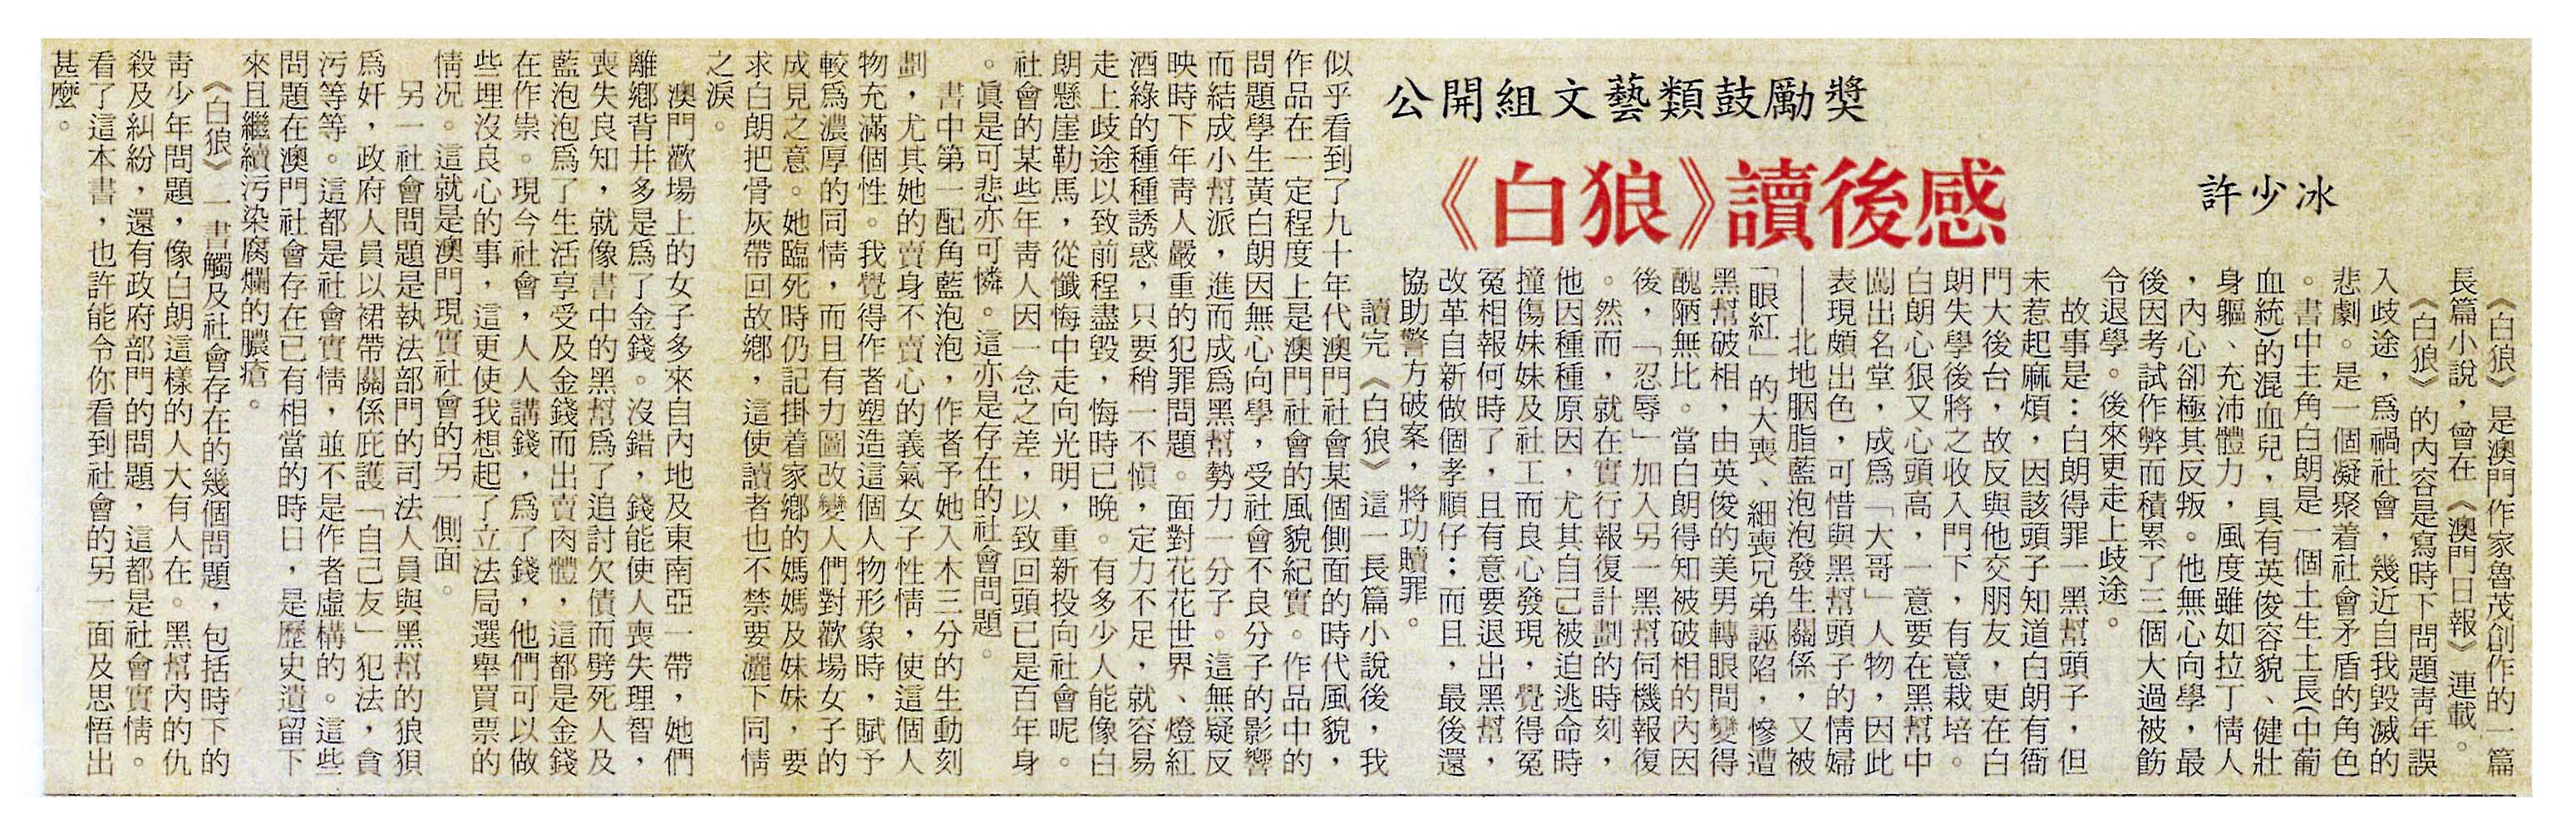 公開組文藝類鼓勵獎
《白狼》讀後感
許少冰
《白狼》是澳門作家魯茂創作的一篇
長篇小說，曾在《澳門日報》連載。
《白狼》的內容是寫時下問題靑年誤
入歧途，爲禍社會，幾近自我毀滅的
悲劇。是一個凝聚着社會矛盾的角色
。書中主角白朗是一個土生土長(中葡
血統)的混血兒，具有英俊容貌、健壯
身軀、充沛體力，風度雖如拉丁情人
，內心卻極其反叛。他無心向學，最
後因考試作弊而積累了三個大過被飭
令退學。後來更走上歧途。
故事是：白朗得罪一黑幫頭子，但
未惹起麻煩，因該頭子知道白朗有衙
門大後台，故反與他交朋友，更在白
朗失學後將之收入門下，有意栽培。
白朗心狠又心頭高，一意要在黑幫中
闖出名堂，成爲「大哥」人物，因此
表現頗出色，可惜與黑幫頭子的情婦
──北地胭脂藍泡泡發生關係，又被
「眼紅」的大喪、細喪兄弟誣陷，慘遭
黑幫破相，由英俊的美男轉眼間變得
醜陋無比。當白朗得知被破相的內因
後，「忍辱」加入另一黑幫伺機報復
。然而，就在實行報復計劃的時刻，
他因種種原因，尤其自己被迫逃命時
撞傷妹妹及社工而良心發現，覺得冤
冤相報何時了，且有意要退出黑幫，
改革自新做個孝順仔；而且，最後還
協助警方破案，將功贖罪。
讀完《白狼》這一長篇小說後，我
似乎看到了九十年代澳門社會某個側面的時代風貌，
作品在一定程度上是澳門社會的風貌紀實。作品中的
問題學生黃白朗因無心向學，受社會不良分子的影響
而結成小幫派，進而成爲黑幫勢力一分子。這無疑反
映時下年靑人嚴重的犯罪問題。面對花花世界、燈紅
酒綠的種種誘惑，只要稍一不愼，定力不足，就容易
走上歧途以致前程盡毀，悔時已晚。有多少人能像白
朗懸崖勒馬，從懺悔中走向光明，重新投向社會呢。
社會的某些年靑人因一念之差，以致回頭已是百年身
。眞是可悲亦可憐。這亦是存在的社會問題。
書中第一配角藍泡泡，作者予她入木三分的生動刻
劃，尤其她的賣身不賣心的義氣女子性情，使這個人
物充滿個性。我覺得作者塑造這個人物形象時，賦予
較爲濃厚的同情，而且有力圖改變人們對歡場女子的
成見之意。她臨死時仍記掛着家鄉的媽媽及妹妹，要
求白朗把骨灰帶回故鄉，這使讀者也不禁要灑下同情
之淚。
澳門歡場上的女子多來自內地及東南亞一帶，她們
離鄉背井多是爲了金錢。沒錯，錢能使人喪失理智，
喪失良知，就像書中的黑幫爲了追討欠債而劈死人及
藍泡泡爲了生活享受及金錢而出賣肉體，這都是金錢
在作祟。現今社會，人人講錢，爲了錢，他們可以做
些埋沒良心的事，這更使我想起了立法局選舉買票的
情况。這就是澳門現實社會的另一側面。
另一社會問題是執法部門的司法人員與黑幫的狼狽
爲奸，政府人員以裙帶關係庇護「自己友」犯法，貪
污等等。這都是社會實情，並不是作者虛構的。這些
問題在澳門社會存在已有相當的時日，是歷史遺留下
來且繼續污染腐爛的膿瘡。
《白狼》一書觸及社會存在的幾個問題，包括時下的
靑少年問題，像白朗這樣的人大有人在。黑幫內的仇
殺及糾紛，還有政府部門的問題，這都是社會實情。
看了這本書，也許能令你看到社會的另一面及思悟出
甚麼。